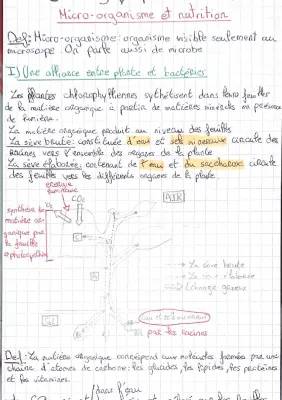 Micro-organisme et nutrition
Def: Micro-organisme: organisme visible seulement au
microscope. On parle aussi de microbe
I) Une alliance entre plante et bactéries
Les plantes chlorophylliennes synthétisent dans leurs feuilles
de la matière organique à partir de matières minérales en présence
de lumière.
La matière organique produit au niveau des feuilles
La sève brute: constituée d'eau et sels minéraux circule des
racines vers l'ensemble des organes de la plante
La sève élaborée: contenant de l'eau et du saccharose circule
des feuilles vers les différents organes de la plante
énergie
lumineuse
CO2
synthèse de
matière or-
ganique par
la feuille
AIR
→ La sève brute
→ La sève élaborée
échange gazeux
Sol
eau et sel minéraux
par les racines
Def: La matière organique correspond aux molécules formées par une
chaîne d'atomes de carbone: les glucides, les lipides, les protéines
et les vitamines.
dans l'eau